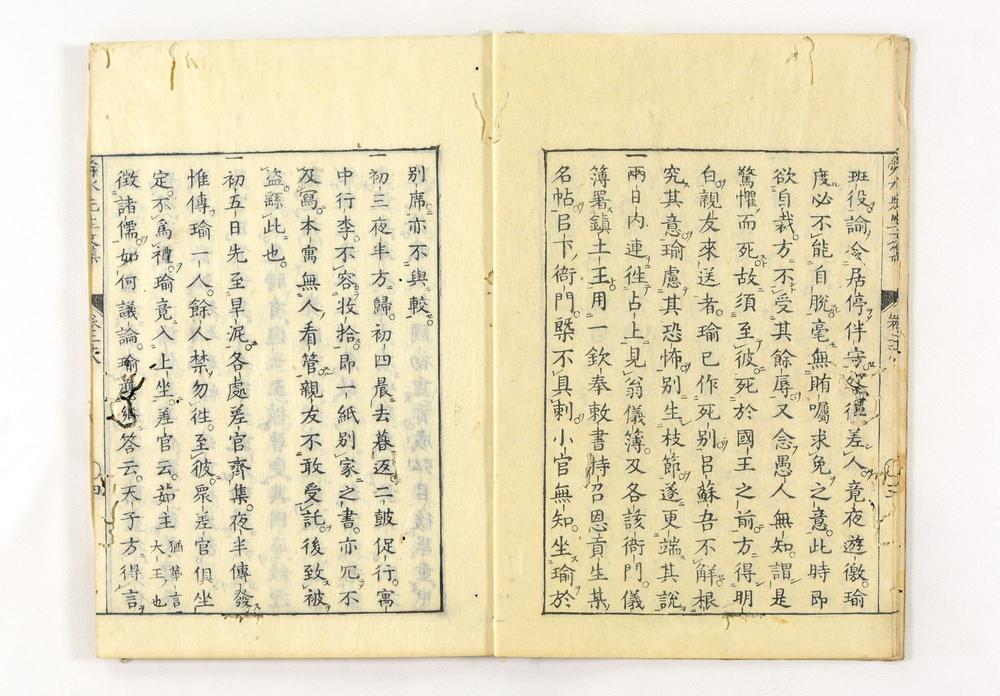 班役諭令居停伴守終徃差人竟夜遊徼瑜
度必不能自脫毫無賄囑求免之意此時即
欲自裁方不受其餘辱又念愚人無知謂是
驚懼而死故須至彼死於國王之前方得明
白親友來送者瑜已作死別呂蘇吾不解根
究其意瑜慮其恐怖別生枝節遂更端其說
一兩日内連徃占上見翁儀簿及各該衙門儀
簿署鎮土王用一欽奉敕書特召恩貢生某
名帖呂卞衙門槩不具剌小官無知坐瑜於
別席亦不與較
一初三夜半方歸初四晨去暮返二鼓促行寓
中行李不容收拾即一紙別家之書亦冗不
及寫本寓無人看管親友不敢受託後致被
盜繇此也
一初五日先至早泥各處差官齊集夜半傳發
惟傳瑜一人餘人禁勿徃至彼眾差官俱坐
定不為禮瑜竟入上坐差官云茹主猶華言大王也
徵諸儒如何議論瑜紙答云天子方得言